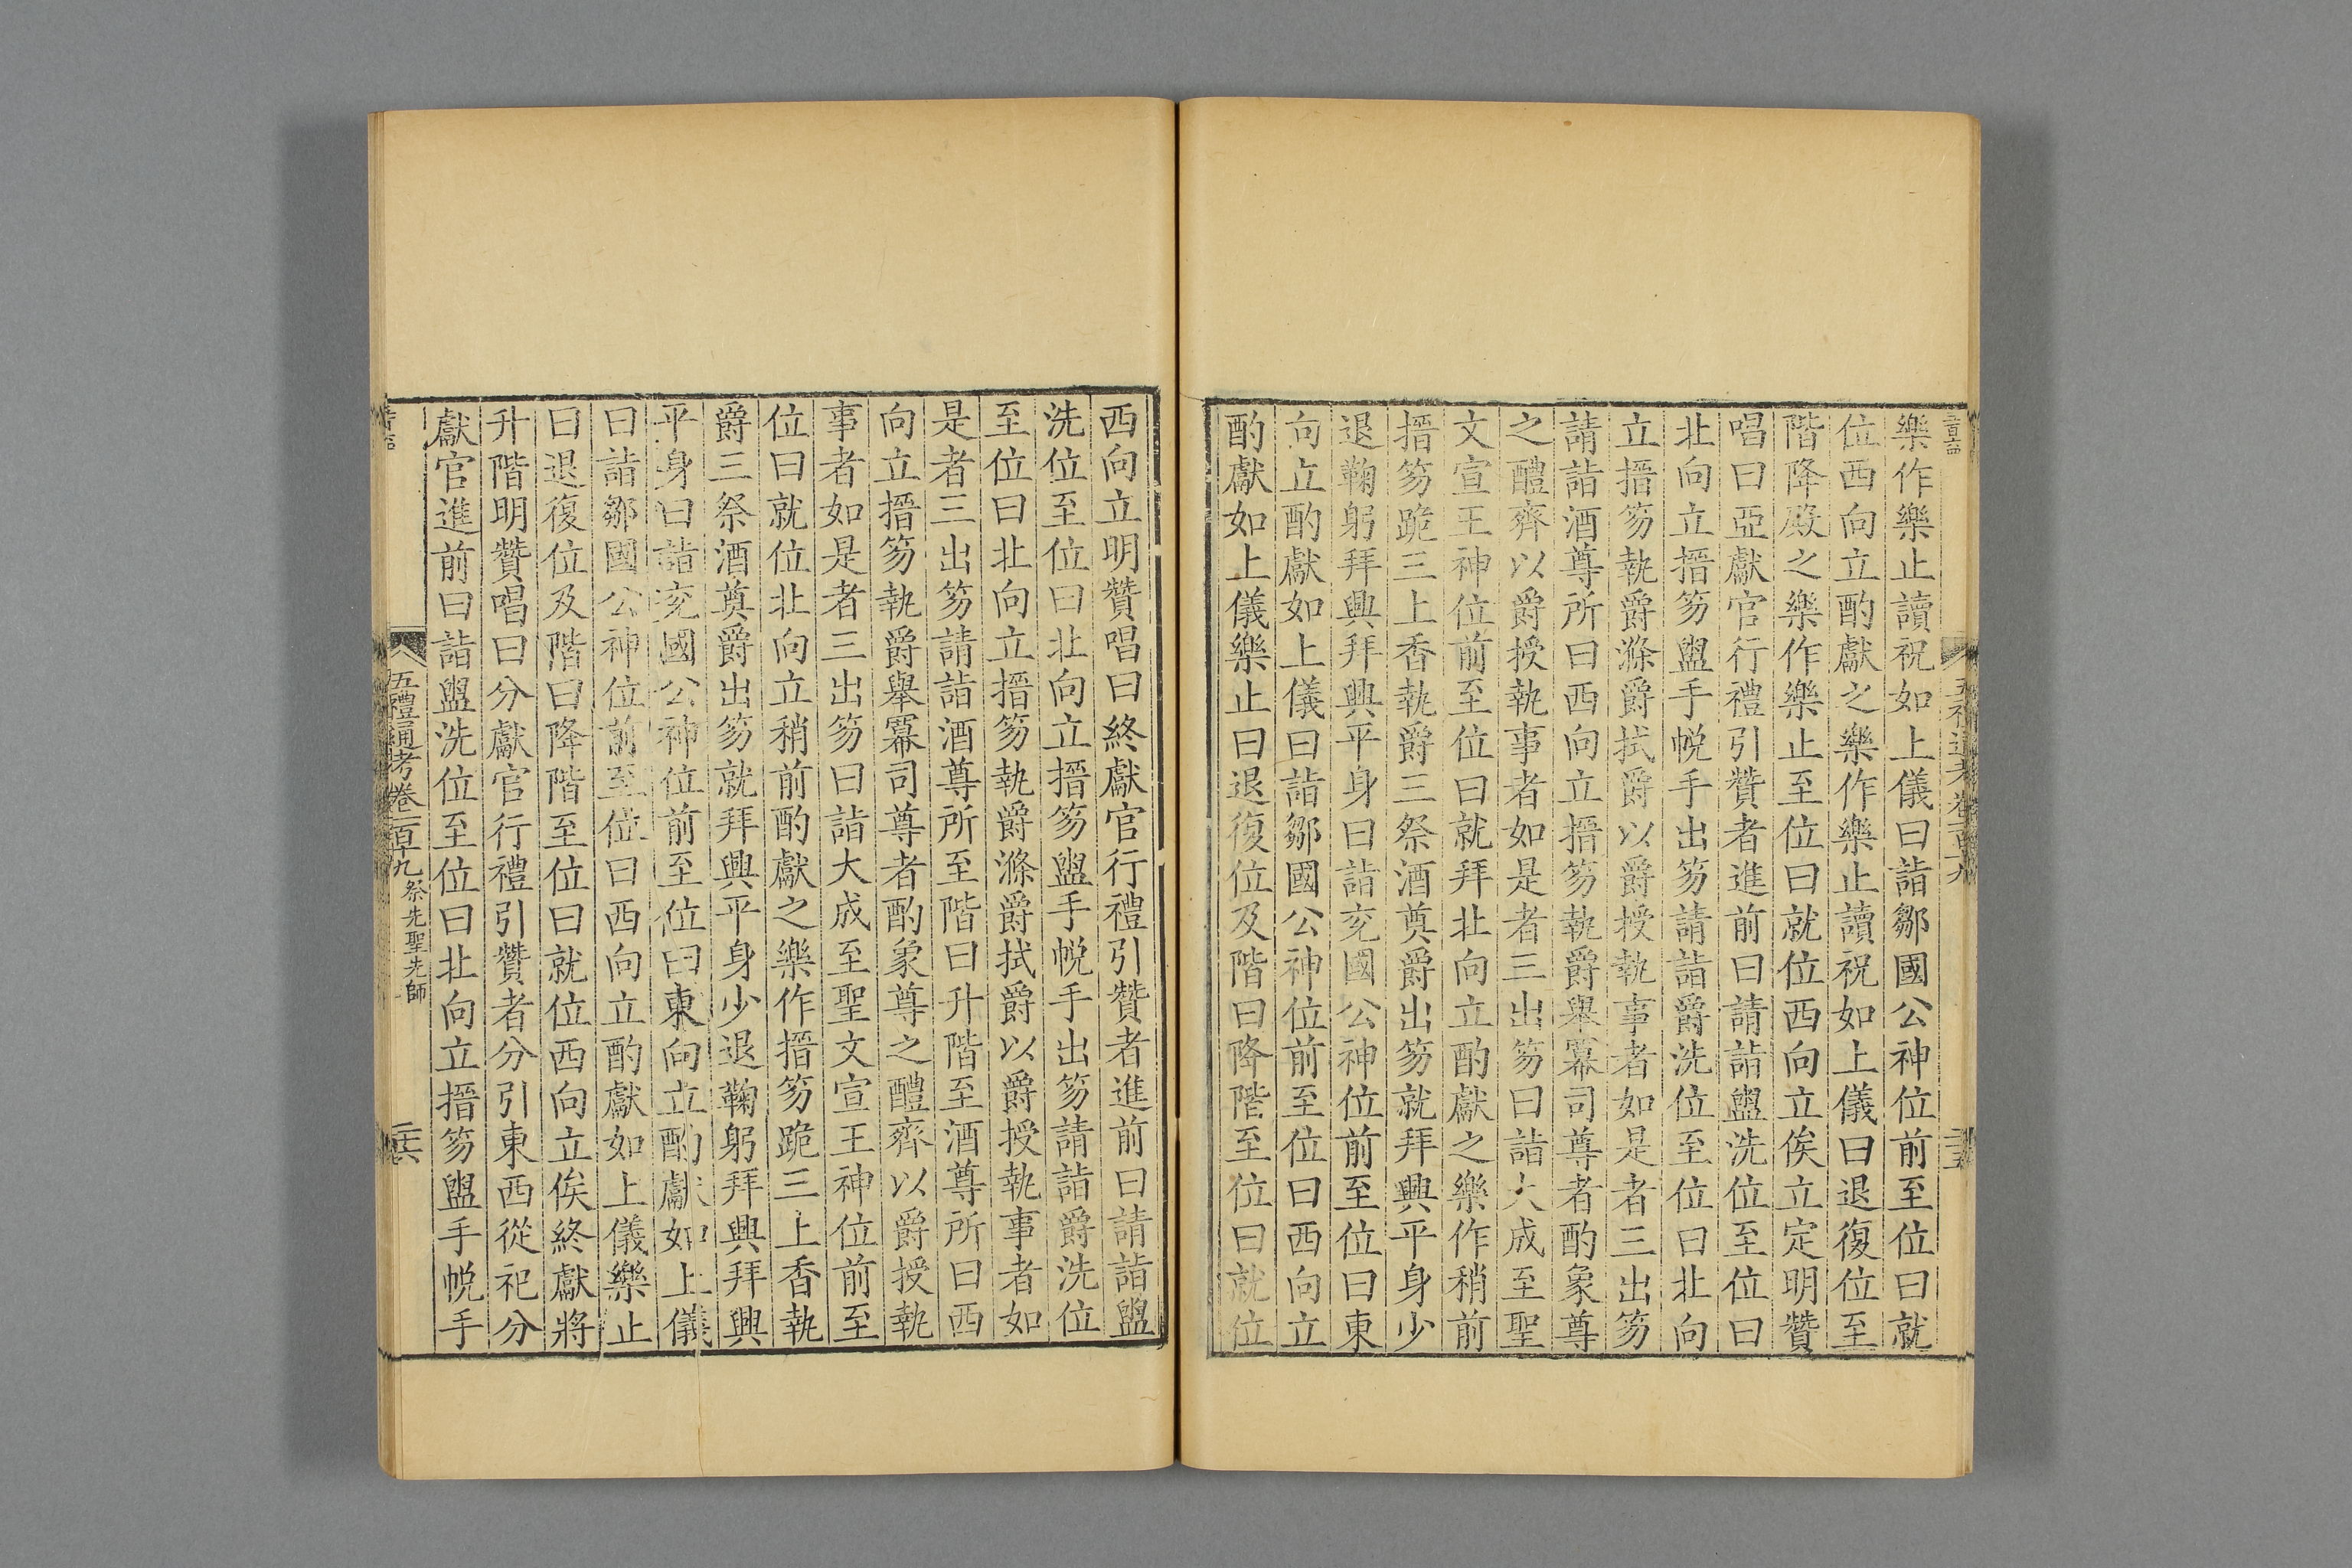 樂作樂止讀祝如上儀曰詣鄒國公神位前至位曰就
位西向立酌獻之樂作樂止讀祝如上儀曰退復位至
階降殿之樂作樂止至位曰就位西向立俟立定明贊
唱曰亞獻官行禮引贊者進前曰請詣盥洗位至位曰
北向立搢笏盥手帨手出笏請詣爵洗位至位曰北向
立搢笏執爵滌爵拭爵以爵授執事者如是者三出笏
請詣酒尊所曰西向立搢笏執爵舉冪司尊者酌象尊
之醴齊以爵授執事者如是者三出笏曰詣大成至聖
文宣王神位前至位曰就拜北向立酌獻之樂作稍前
搢笏跪三上香執爵三祭酒奠爵出笏就拜興平身少
退鞠躬拜興拜興平身曰詣兗國公神位前至位曰東
向立酌獻如上儀曰詣鄒國公神位前至位曰西向立
酌獻如上儀樂止曰退復位及階曰降階至位曰就位
西向立明贊唱曰終獻官行禮引贊者進前曰請詣盥
洗位至位曰北向立搢笏盥手帨手出笏請詣爵洗位
至位曰北向立搢笏執爵滌爵拭爵以爵授執事者如
是者三出笏請詣酒尊所至階曰升階至酒尊所曰西
向立搢笏執爵舉冪司尊者酌象尊之醴齊以爵授執
事者如是者三出笏曰詣大成至聖文宣王神位前至
位曰就位北向立稍前酌獻之樂作搢笏跪三上香執
爵三祭酒奠爵出笏就拜興平身少退鞠躬拜興拜興
平身曰詣兗國公神位前至位曰東向立酌獻如上儀
曰詣鄒國公神位前至位曰西向立酌獻如上儀樂止
曰退復位及階曰降階至位曰就位西向立俟終獻將
升階明贊唱曰分獻官行禮引贊者分引東西從祀分
獻官進前曰詣盥洗位至位曰北向立搢笏盥手帨手
五禮通考卷一百十九 祭先聖先師 二十六